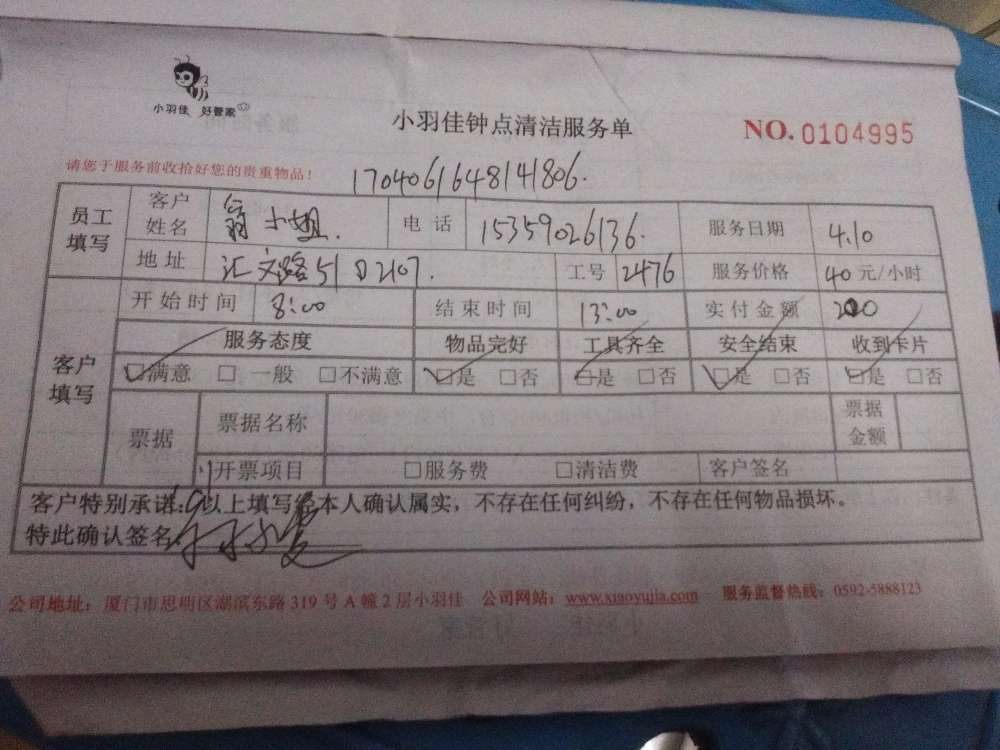 小羽佳 好管家
小羽佳钟点清洁服务单
NO. 0104995
请您于服务前收拾好您的贵重物品！
1704061648141806.
员工填写 客户姓名 翁小姐. 电话 15359026136. 服务日期 4.10
地址 汇文路51 2107. 工号 2476 服务价格 40 元/小时
客户填写 开始时间 8:00 结束时间 13:00 实付金额 200
服务态度 物品完好 工具齐全 安全结束 收到卡片
☑满意 □一般 □不满意 ☑是 □否 ☑是 □否 ☑是 □否 ☑是 □否
票据 票据名称 票据金额
开票项目 □服务费 □清洁费 客户签名
客户特别承诺：以上填写经本人确认属实，不存在任何纠纷，不存在任何物品损坏。
特此确认签名
公司地址：厦门市思明区湖滨东路319号A幢2层小羽佳 公司网站：www.xiaoyujia.com 服务监督热线：0592-5888123